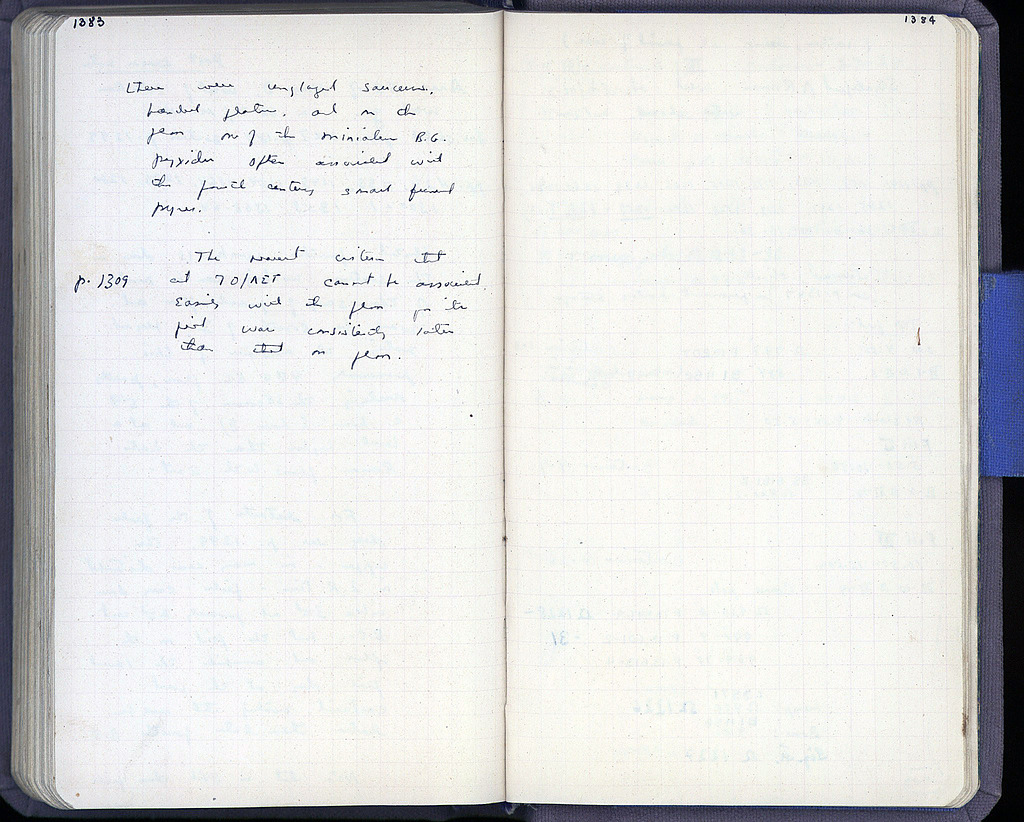 1383
1384
There were unglazed saucers,
handled platter, and on the
floor one of the miniature B.G.
pyxides often associated with
the fourth century small funeral
pyres.
The nearest cistern that
p. 1309 at 70/ΛΕΤ cannot be associated
easily with the floor for its
was consistently later
than that on floor.